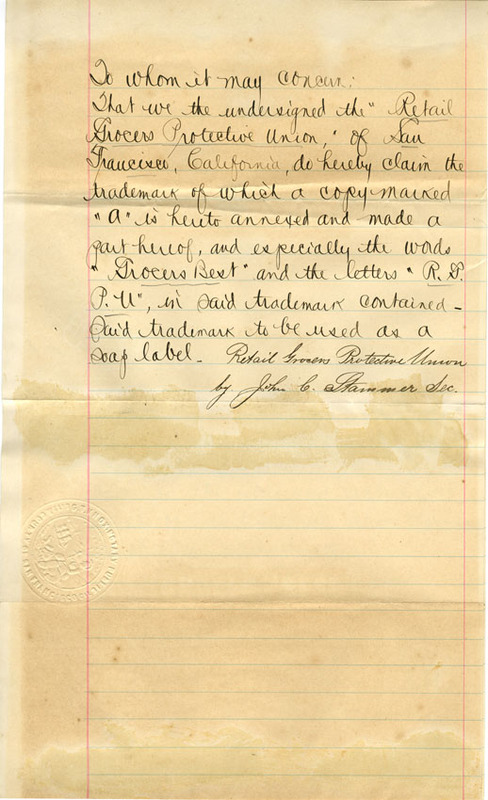 To whom it may concern:
That we the undersigned the "Retail
Grocers Protective Union," of San
Francisco, California, do hereby claim the
trademark of which a copy marked
"A" is hereto annexed and made a
part hereof, and especially the words
"Grocers Best" and the letters "R. G.
P. U", in said trademark contained -
Said trademark to be used as a
soap label - Retail Grocers Protective Union
by John C. Stammer Sec.